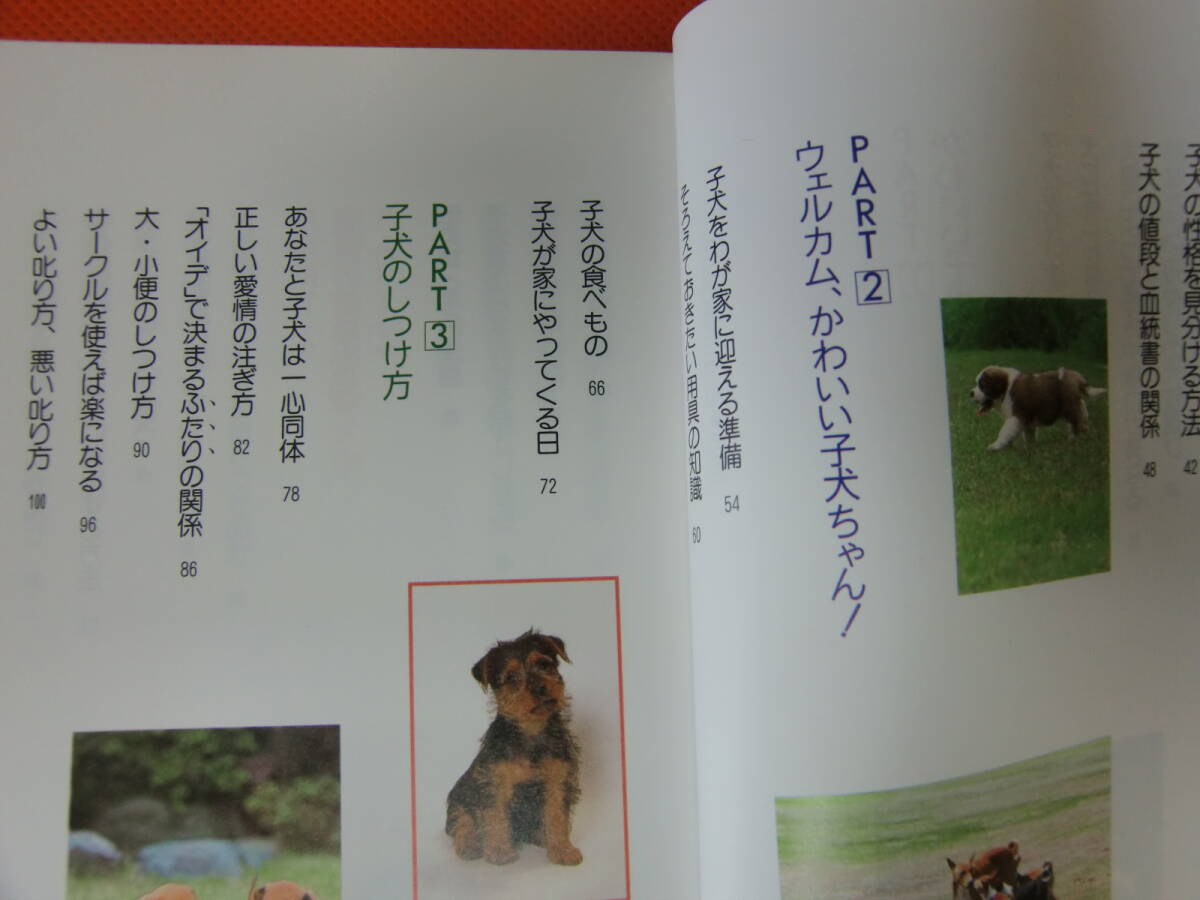 子犬の性格を見分ける方法 42
子犬の値段と血統書の関係 48
PART 2
ウェルカム、かわいい子犬ちゃん!
子犬をわが家に迎える準備 54
そろえておきたい用具の知識 60
子犬の食べもの 66
子犬が家にやってくる日 72
PART 3
子犬のしつけ方
あなたと子犬は一心同体 78
正しい愛情の注ぎ方 82
「オイデ」で決まるふたりの関係 86
大・小便のしつけ方 90
サークルを使えば楽になる 96
よい叱り方、悪い叱り方 100